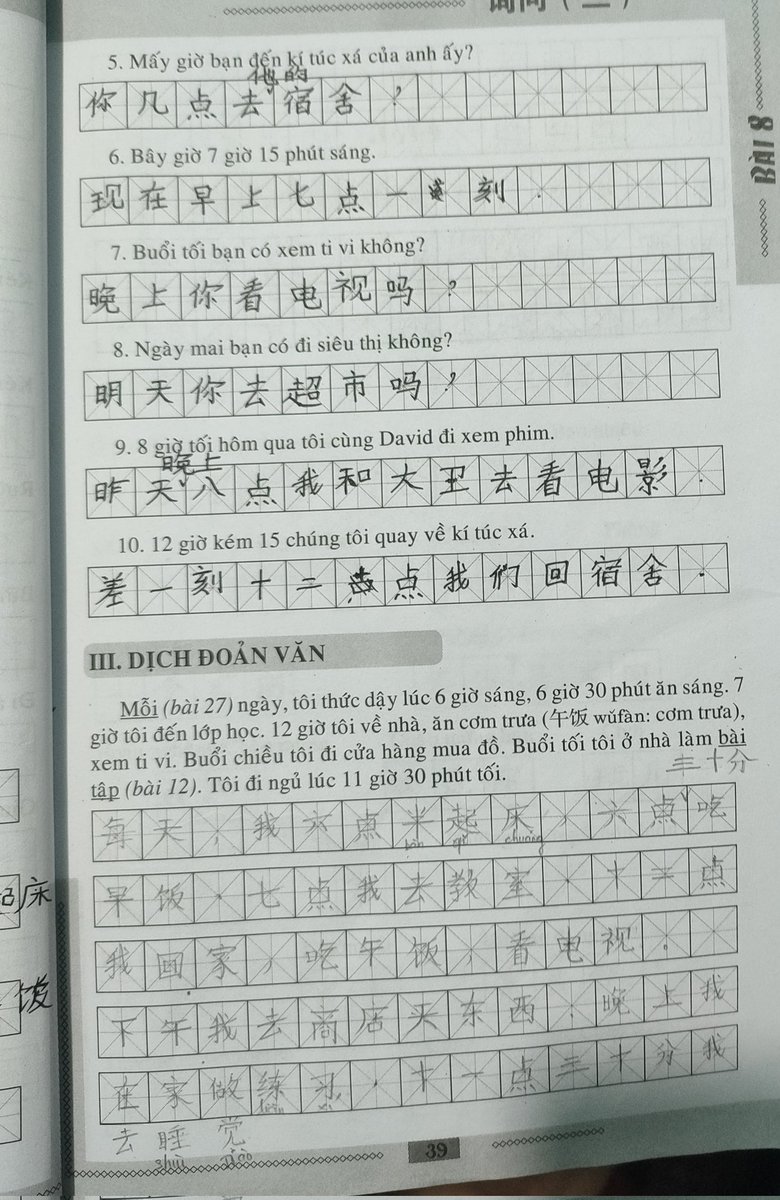 5. Mấy giờ bạn đến kí túc xá của anh ấy?
他的
你几点去宿舍?
BÀI 8
6. Bây giờ 7 giờ 15 phút sáng.
现在早上七点一刻.
7. Buổi tối bạn có xem ti vi không?
晚上你看电视吗?
8. Ngày mai bạn có đi siêu thị không?
明天你去超市吗?
9. 8 giờ tối hôm qua tôi cùng David đi xem phim.
晚上
昨天八点我和大卫去看电影.
10. 12 giờ kém 15 chúng tôi quay về kí túc xá.
差一刻十二点我们回宿舍.
III. DỊCH ĐOẢN VĂN
Mỗi (bài 27) ngày, tôi thức dậy lúc 6 giờ sáng, 6 giờ 30 phút ăn sáng. 7
giờ tôi đến lớp học. 12 giờ tôi về nhà, ăn cơm trưa (午饭 wǔfàn: cơm trưa),
xem ti vi. Buổi chiều tôi đi cửa hàng mua đồ. Buổi tối tôi ở nhà làm bài
tập (bài 12). Tôi đi ngủ lúc 11 giờ 30 phút tối.
三十分
每天,我六点半起床,六点吃
bàn qǐ chuáng
早饭,七点我去教室.十二点
我回家,吃午饭,看电视。
下午我去商店买东西.晚上我
在家做练习,十一点三十分我
liàn xí
去睡觉
shuì jiào
39
床
饭